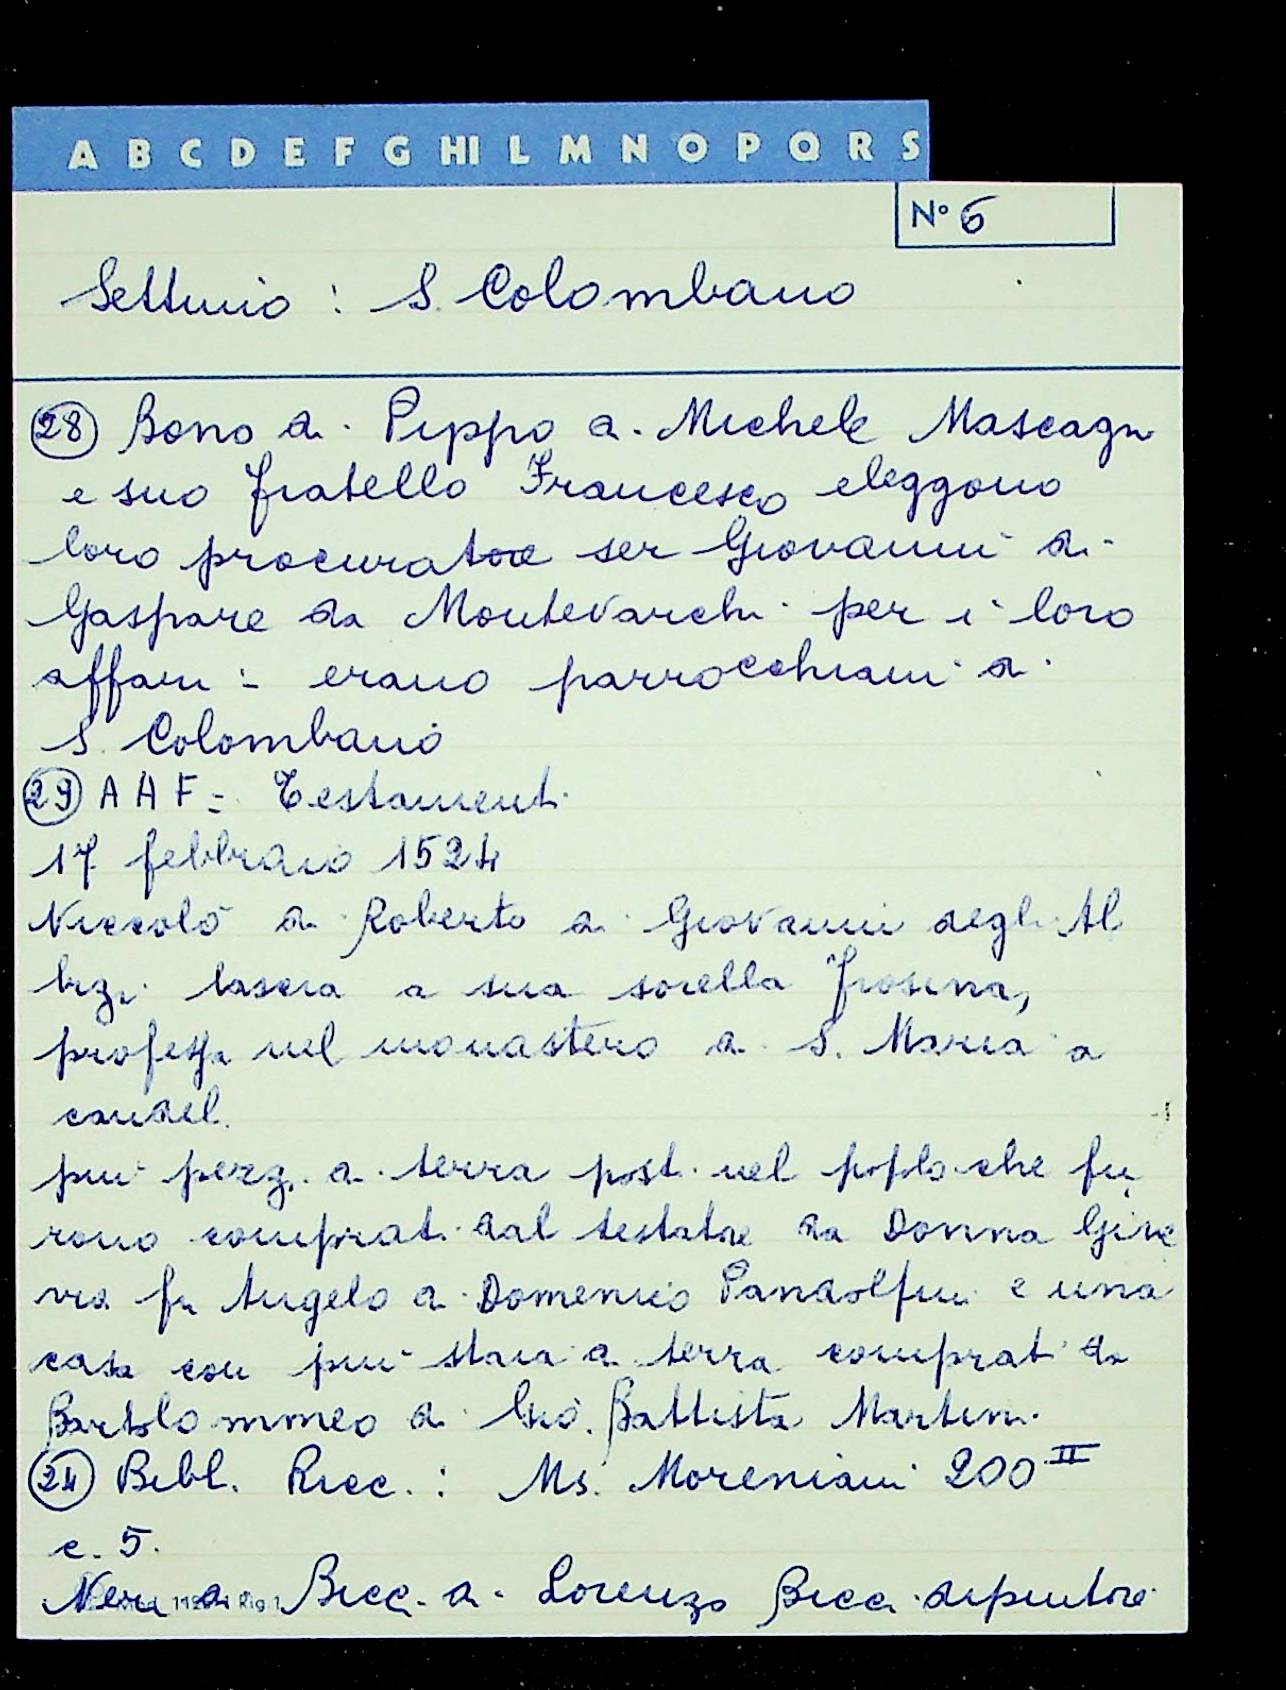 A B C D E F G HI L M N O P Q R S
N° 6
Settimo : S. Colombano
28 Bono di Pippo di Michele Mascagni
e suo fratello Francesco eleggono
loro procuratore ser Giovanni di
Gaspare da Montevarchi per i loro
affari = erano parrocchiani di
S. Colombano
29 A A F = Testamenti
17 febbraio 1524
Niccolò di Roberto di Giovanni degli Al
bizi lascia a sua sorella Frosina,
professa nel monastero di S. Maria a
candeli
più pezzi di terra posti nel popolo che fu
rono comprati dal testatore da Donna Gine
vra fu Angelo di Domenico Pandolfini e una
casa con più staia di terra comprati da
Bartolommeo di Gio. Battista Martini
24 Bibl. Ricc. : Ms. Moreniani 200 II
c. 5.
Neri di Bicci di Lorenzo Bicci dipintore